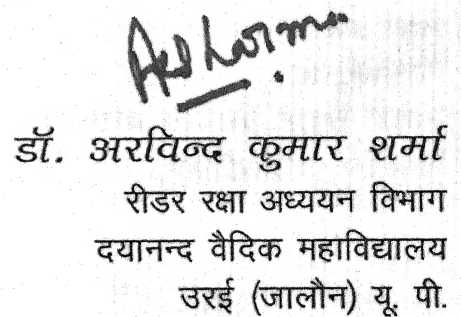 AKSharma
डॉ. अरविन्द कुमार शर्मा
रीडर रक्षा अध्ययन विभाग
दयानन्द वैदिक महाविद्यालय
उरई (जालौन) यू. पी.